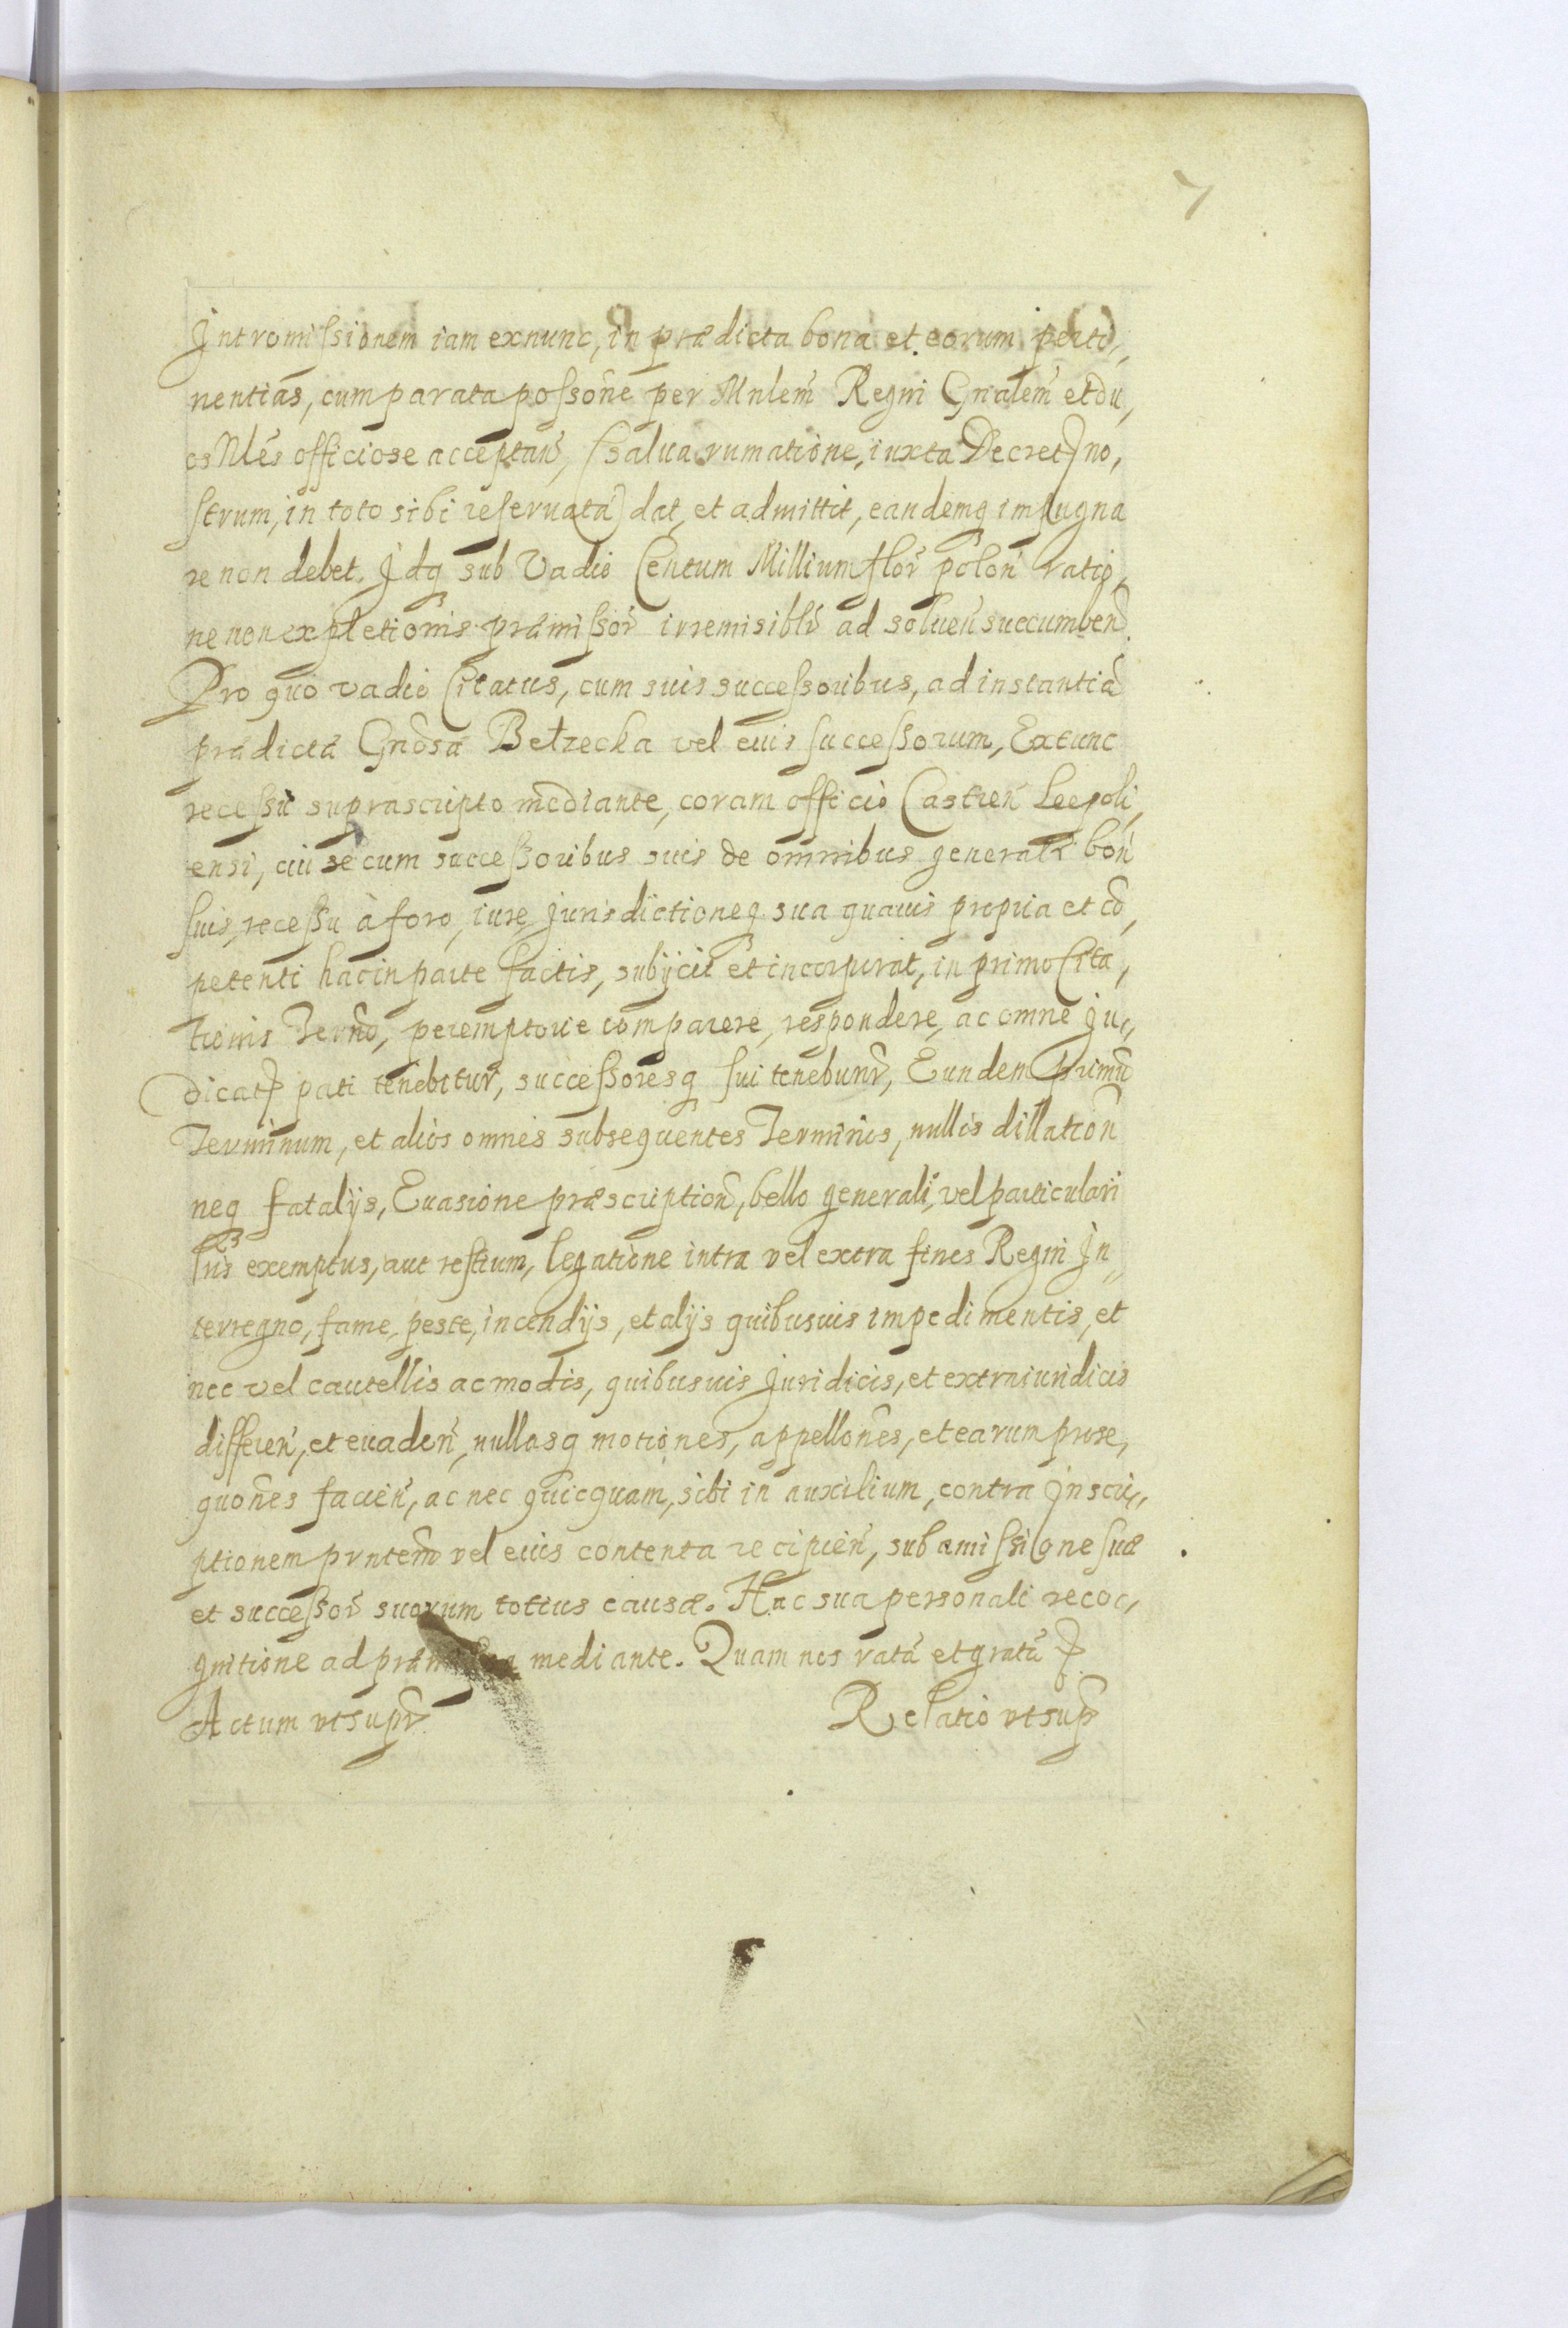 7
Intromißionem iam exnunc, in prædicta bona et eorum perti,,
nentias, cum parata poßone per Mnlem Regni Gnalem et du,
os Nles officiose acceptan, (salua rumatione, iuxta Decret no,
strum, in toto sibi reseruata) dat, et admittit, eandemq impugna
re non debet. Idq sub Vadio Centum Millium flor polon ratio,
ne non expletionis præmißor irremisiblr ad soluen succumben.
Pro quo vadio Citatus, cum suis succeßoribus, ad instantiā
prædictæ Gnosæ Bełzecka vel eius succeßorum, Extunc
receßu suprascripto mediante, coram officio Castren Leopoli,
ensi, cui se cum succeßoribus suis de omnibus generalr bon
suis, receßu à foro, iure, Jurisdictioneq sua quauis propria et cō,
petenti hac in parte factis, subijcit et incorporat, in primo Cita,
tionis Termo, peremptorie comparere, respondere, ac omne Ju,,
dicat pati tenebitur, succeßoresq sui tenebunr, Eundem primū
Terminum, et alios omnes subsequentes Terminos, nullis dillation
neq fatalijs, Euasione præscription, bello generali, vel particulari
exemptus, aut restium, legatione intra vel extra fines Regni In,,
terregno, fame, peste, incendijs, et alijs quibusuis impedimentis, et
nec vel cautellis ac modis, quibusuis Juridicis, et extraiuridicis
differen, et euaden, nullasq motiones, appellones, et earum prose,
quones facien, ac nec quicquam, sibi in auxilium, contra Inscri,,
ptionem prntem vel eius contenta recipien, sub amißione suæ
et succeßor suorum totius causæ. Hac sua personali recoc,
gnitione ad præmißa mediante. Quam nos ratā et gratā
Actum vt supr Relatio vt sup